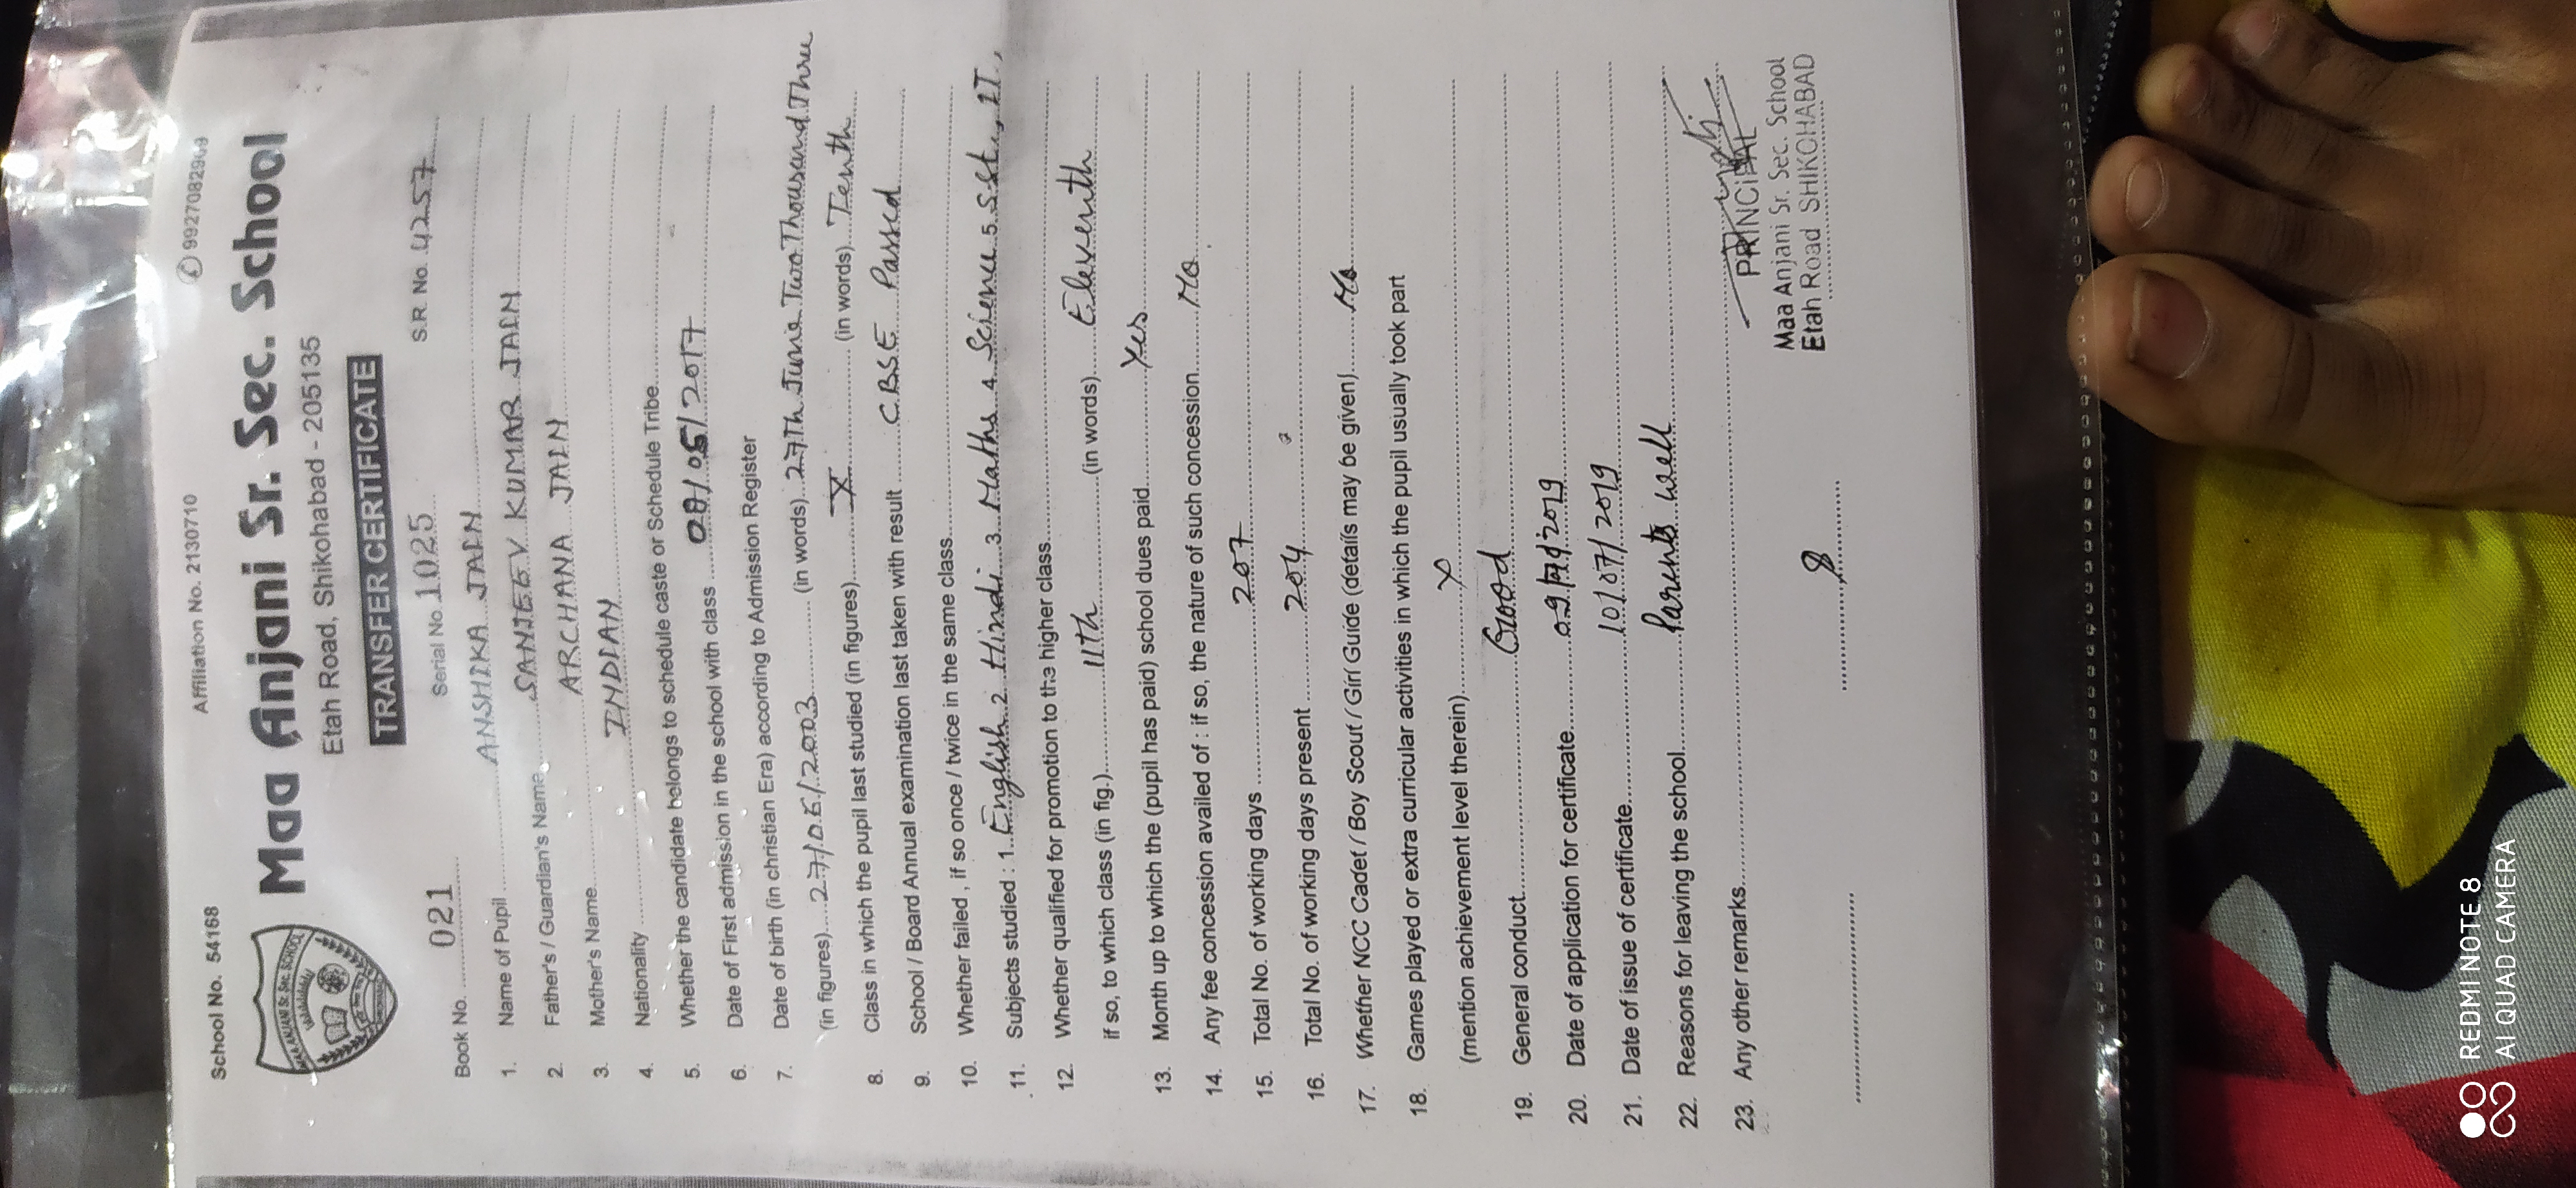 School No. 54168 Affiliation No. 2130710 ✆ 9927082909
MAA ANJANI Sr. Sec. SCHOOL
Maa Anjani Sr. Sec. School
Etah Road, Shikohabad - 205135
TRANSFER CERTIFICATE
Book No. 021 Serial No. 11025 S.R. No. 4257
1. Name of Pupil ANSHIKA JAIN
2. Father's / Guardian's Name SANJEEV KUMAR JAIN
3. Mother's Name ARCHANA JAIN
4. Nationality INDIAN
5. Whether the candidate belongs to schedule caste or Schedule Tribe
6. Date of First admission in the school with class 08/05/2017
7. Date of birth (in christian Era) according to Admission Register
(in figures) 27/06/2003 (in words) 27Th June Two Thousand Three
8. Class in which the pupil last studied (in figures) X (in words) Tenth
9. School / Board Annual examination last taken with result CBSE Passed
10. Whether failed , if so once / twice in the same class
11. Subjects studied : 1. English 2 Hindi 3 Maths 4 Science 5 S.St., IT,
12. Whether qualified for promotion to the higher class
if so, to which class (in fig.) 11th (in words) Eleventh
13. Month up to which the (pupil has paid) school dues paid Yes
14. Any fee concession availed of : if so, the nature of such concession No
15. Total No. of working days 207
16. Total No. of working days present 204
17. Whether NCC Cadet / Boy Scout / Girl Guide (details may be given) No
18. Games played or extra curricular activities in which the pupil usually took part
(mention achievement level therein) X
19. General conduct Good
20. Date of application for certificate 09/07/2019
21. Date of issue of certificate 10/07/2019
22. Reasons for leaving the school Parents well
23. Any other remarks
PRINCIPAL
Maa Anjani Sr. Sec. School
Etah Road SHIKOHABAD
REDMI NOTE 8
AI QUAD CAMERA